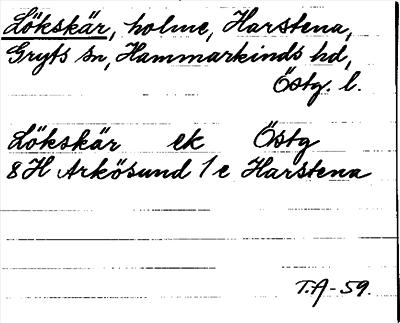 Lökskär, holme, Harstena,
Gryts sn, Hammarkinds hd,
Östg. l.
Lökskär ek Östg
8H Arkösund 1 e Harstena
T.A-59.